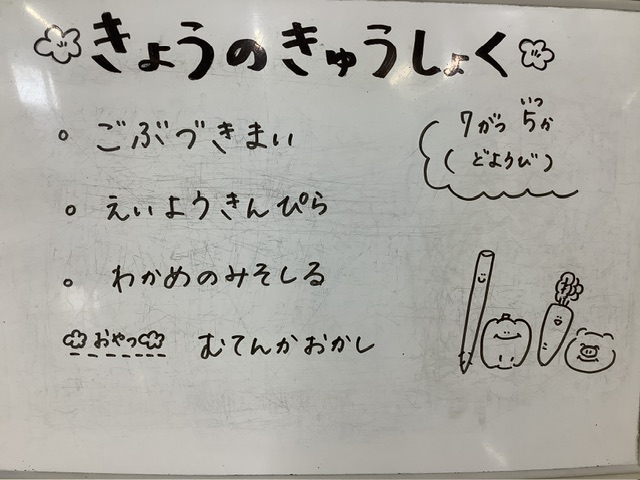 きょうのきゅうしょく
7がつ 5か
いつ
(どようび)
。ごぶづきまい
。えいようきんぴら
。わかめのみそしる
おやつ むてんかおかし